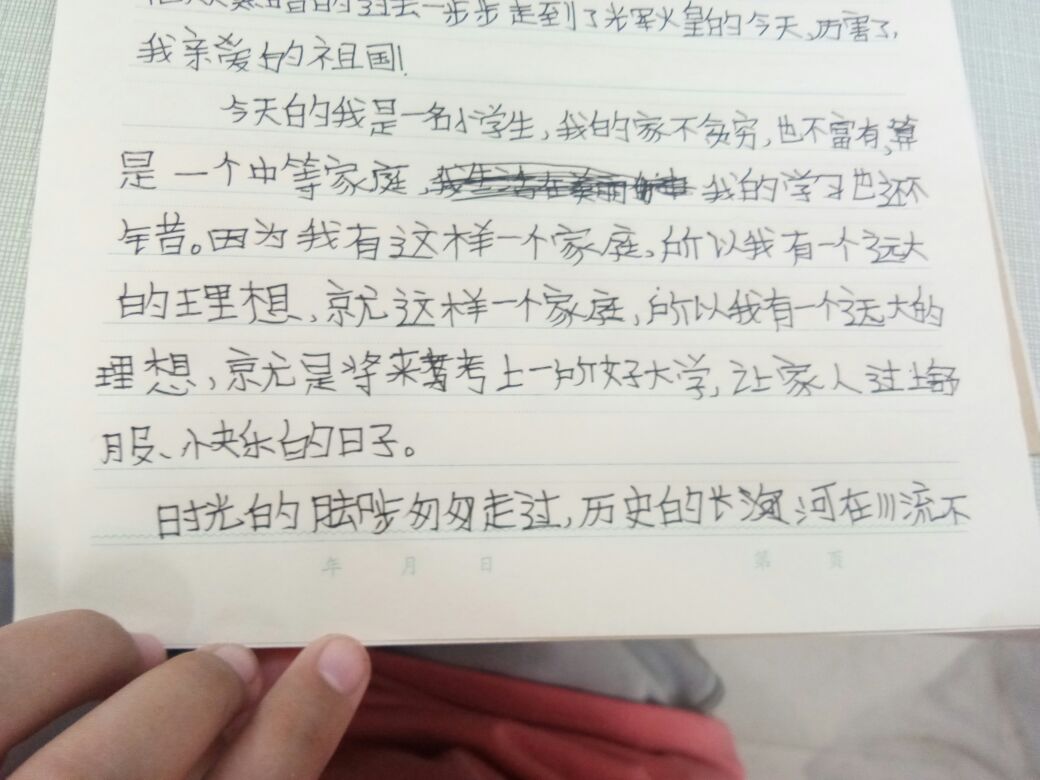 的过去一步步走到了光辉火皇的今天,厉害了,
我亲爱的祖国!
今天的我是一名小学生,我的家不贫穷,也不富有,算
是一个中等家庭,我的学习也还不
错。因为我有这样一个家庭,所以我有一个远大
的理想,就这样一个家庭,所以我有一个远大的
理想,就是将来考上一所好大学,让家人过上舒
服、快乐的日子。
时光的脚步匆匆走过,历史的长河在川流不
年 月 日 第 页